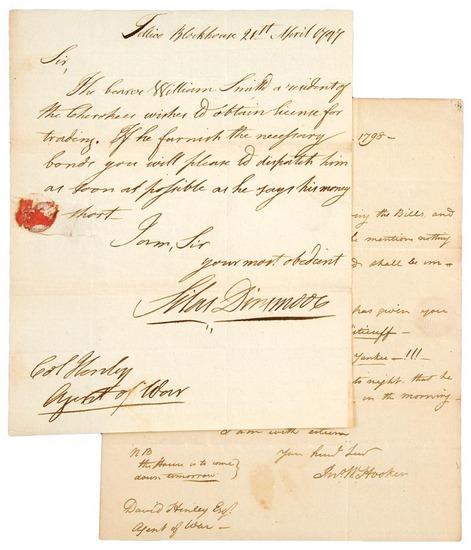 Tellico Blockhouse 21st April 1797
Sir,
The bearer William Smith a resident of
the Cherokees wishes to obtain license for
trading. If he furnish the necessary
bonds you will please to despatch him
as soon as possible as he says his money
short
I am, Sir
your most obedient
Silas Dinsmoor
Col Henley
Agent of War
1798 –
ing the Bills, and
mention nothing
shall be un-
has given you
Yankee – !!!
to night that he
in the morning
I am with esteem
Your humle Serv
Jno. W. Hooker
NB
the House is to come
down tomorrow
David Henley Esqr
Agent of War –